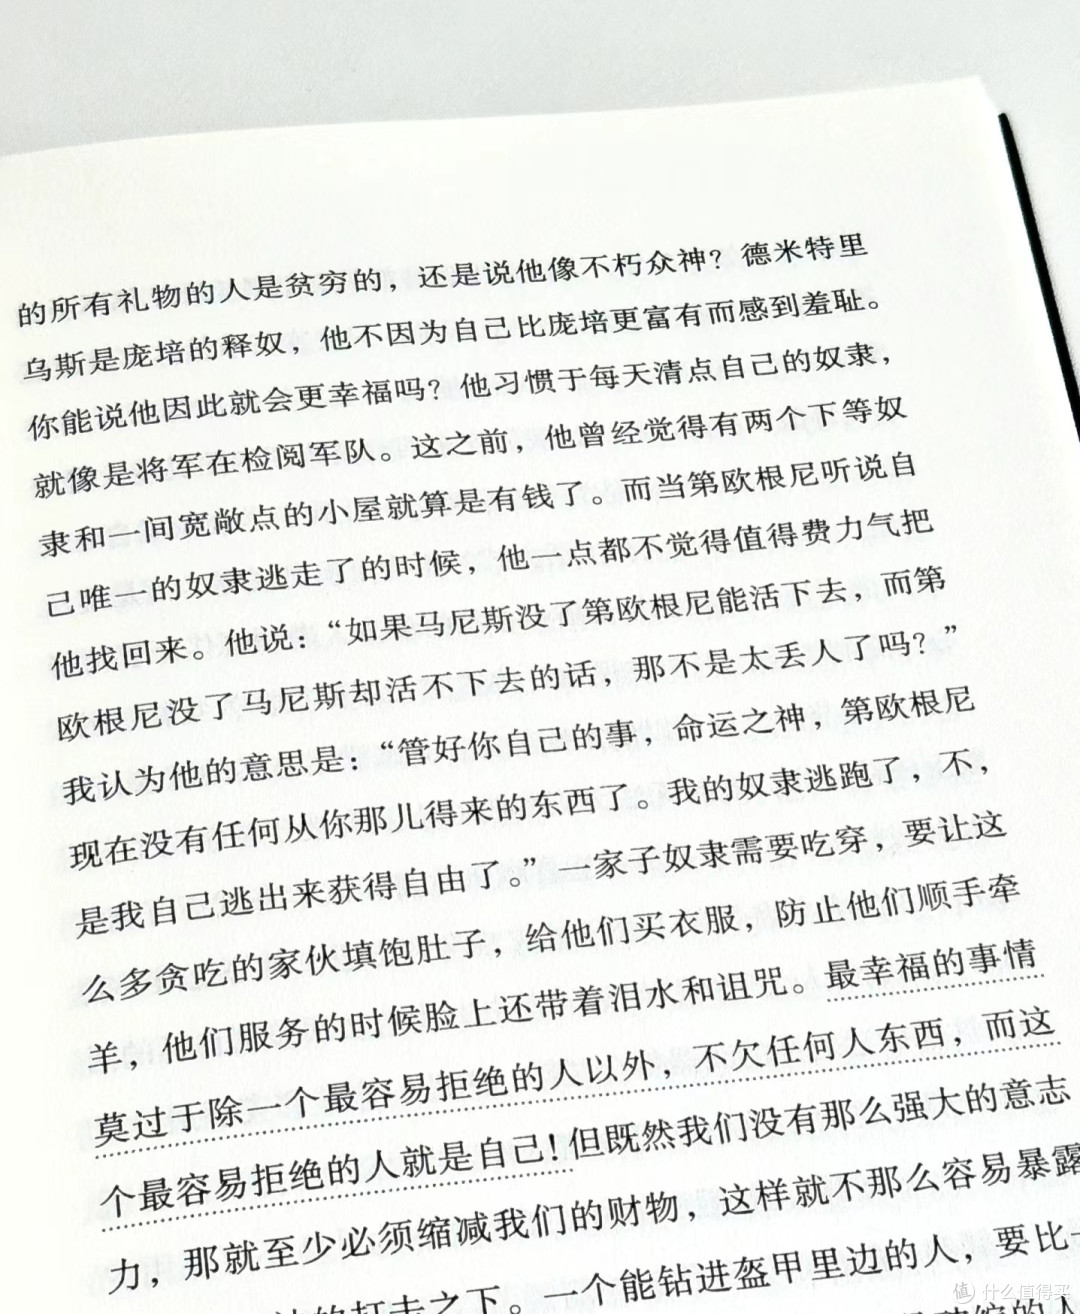 的所有礼物的人是贫穷的，还是说他像不朽众神？德米特里
乌斯是庞培的释奴，他不因为自己比庞培更富有而感到羞耻。
你能说他因此就会更幸福吗？他习惯于每天清点自己的奴隶，
就像是将军在检阅军队。这之前，他曾经觉得有两个下等奴
隶和一间宽敞点的小屋就算是有钱了。而当第欧根尼听说自
己唯一的奴隶逃走了的时候，他一点都不觉得值得费力气把
他找回来。他说：“如果马尼斯没了第欧根尼能活下去，而第
欧根尼没了马尼斯却活不下去的话，那不是太丢人了吗？”
我认为他的意思是：“管好你自己的事，命运之神，第欧根尼
现在没有任何从你那儿得来的东西了。我的奴隶逃跑了，不，
是我自己逃出来获得自由了。”一家子奴隶需要吃穿，要让这
么多贪吃的家伙填饱肚子，给他们买衣服，防止他们顺手牵
羊，他们服务的时候脸上还带着泪水和诅咒。最幸福的事情
莫过于除一个最容易拒绝的人以外，不欠任何人东西，而这
个最容易拒绝的人就是自己！但既然我们没有那么强大的意志
力，那就至少必须缩减我们的财物，这样就不那么容易暴露
的打击之下。一个能钻进盔甲里边的人，要比
值 什么值得买